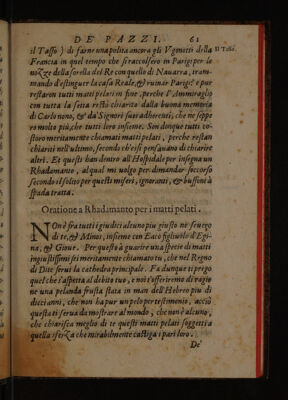 DE PAZZI. 61
il Tasso) di farne una polita ancora gli Vgonotti della Il Tasso.
Francia in quel tempo che si raccolsero in Parigi per le
nozze della sorella del Re con quello di Nauarra, tram-
mando d'estinguer la casa Reale, & ruinar Parigi: e pur
restaron tutti matti pelati in fine, perche l'Ammiraglio
con tutta la setta restò chiarito dalla buona memoria
di Carlo nono, & da' Signori suoi adherenti, che ne seppe
ro molto più, che tutti loro insieme. Son dunque tutti co-
storo meritamente chiamati matti pelati, perche restan
chiariti nell'ultimo, secondo ch'essi pensauano di chiarire
altri. Et questi han dentro all'Hospidale per insegna un
Rhadamanto, al qual mi volgo per dimandar soccorso
secondo il solito per questi miseri, ignoranti, & buffoni à
spada tratta.
Oratione a Rhadamanto per i matti pelati.
NOn è fra tutti i giudici alcuno più giusto ne seuero
di te, & Minos, insieme con Eaco figliuolo d'Egi-
na, & Gioue. Per questo à guarire una specie di matti
ingiustissimi sei meritamente chiamato tu, che nel Regno
di Dite serui la cathedra principale. Fa dunque ti prego
quel che s'aspetta al debito tuo, e noi t'offeriremo di ragio
ne una pelanda frusta stata in man dell'Hebreo piu di
dieci anni, che non ha pur un pelo per testimonio, acciò
questa ti serua da mostrare al mondo, che non è alcuno,
che chiarisca meglio di te questi matti pelati soggetti a
quella sferza che mirabilmente castiga i pari loro.
De'